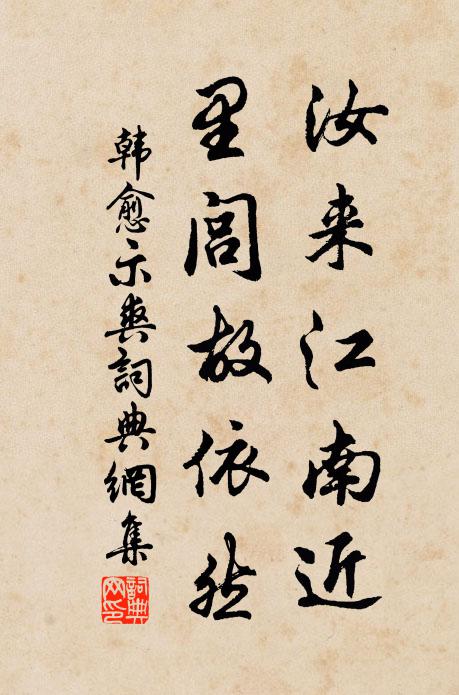 汝来江南近
里闾故依然
韩愈示爽詞典網集
詞典网印